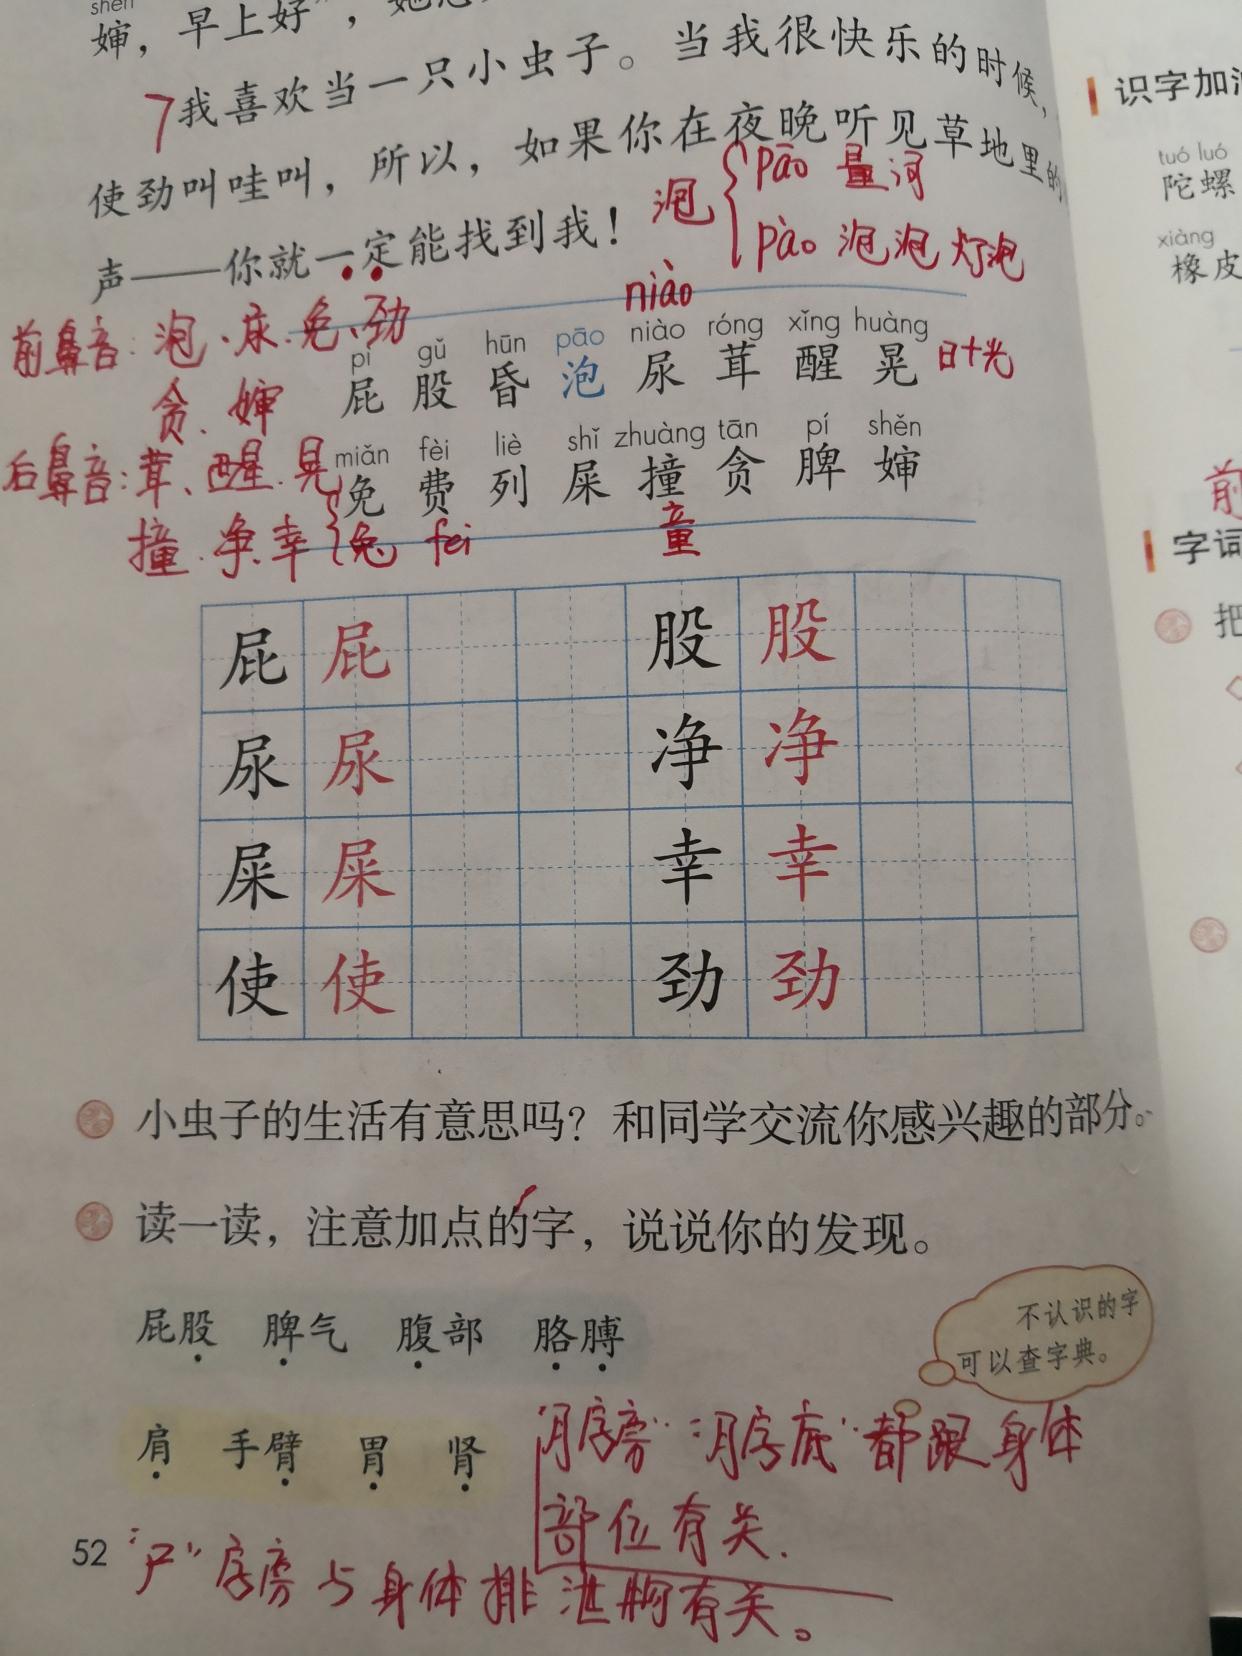 shěn
婶，早上好”，
7我喜欢当一只小虫子。当我很快乐的时候，
使劲叫哇叫，所以，如果你在夜晚听见草地里的
声——你就一定能找到我！
泡 pāo 量词
pào 泡泡 灯泡
niào
前鼻音：泡、尿、免、劲
贪、婶
pì gǔ hūn pāo niào róng xǐng huàng
屁 股 昏 泡 尿 茸 醒 晃 日十光
后鼻音：茸、醒、晃
miǎn fèi liè shǐ zhuàng tān pí shěn
免 费 列 屎 撞 贪 脾 婶
撞、净、幸 兔 fei 童
屁 屁 股 股
尿 尿 净 净
屎 屎 幸 幸
使 使 劲 劲
小虫子的生活有意思吗？和同学交流你感兴趣的部分。
读一读，注意加点的字，说说你的发现。
屁股 脾气 腹部 胳膊
不认识的字
可以查字典。
肩 手臂 胃 肾
“月字旁”“月字底”都跟身体
部位有关.
52
“尸”字旁与身体排泄物有关。
识字加油
tuó luó
陀螺
xiàng
橡皮
前
字词
把